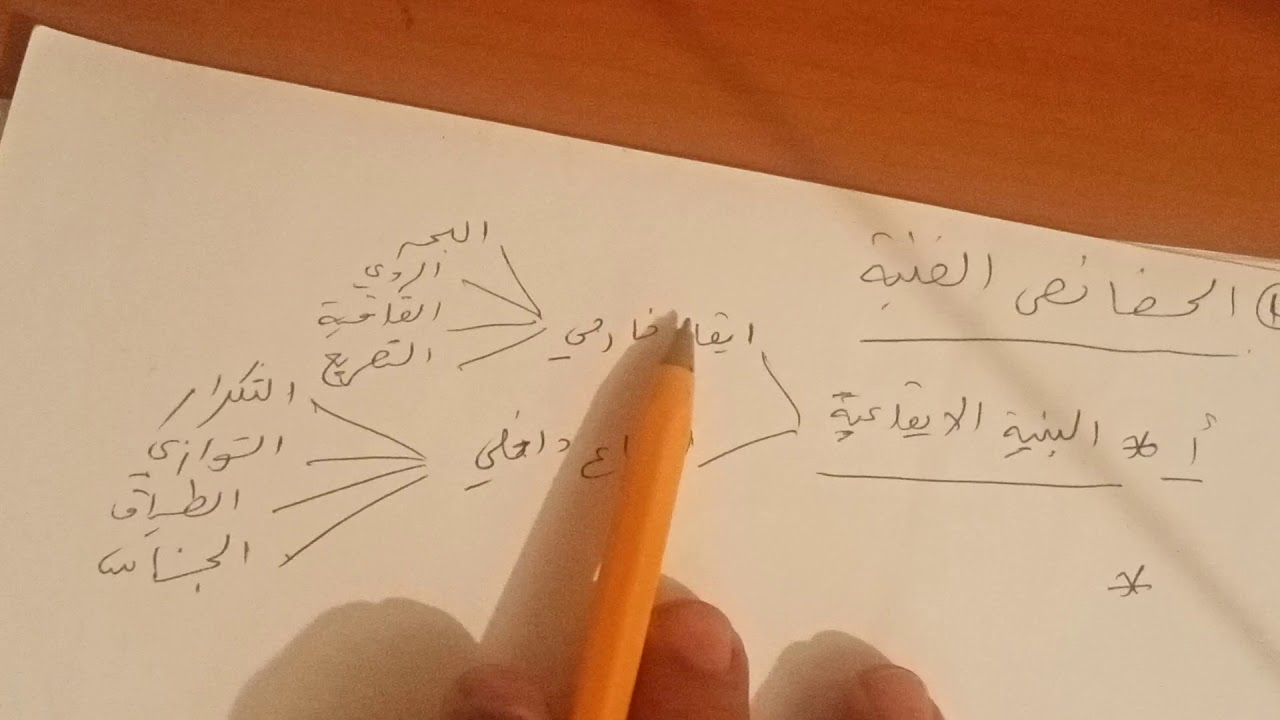 الخصائص الفنية
أ * البنية الايقاعية
ايقاع خارجي
البحر
الروي
القافية
التصريع
داخلي
التكرار
التوازي
الطباق
الجناس
*